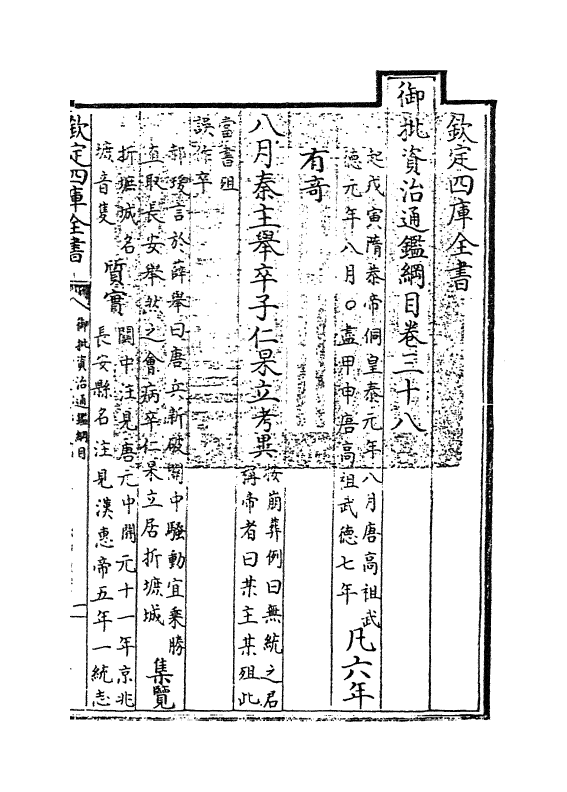 欽定四庫全書
御批資治通鑑綱目卷三十八
起戊寅隋恭帝侗皇泰元年八月唐高祖武
德元年八月〇盡甲申唐高祖武德七年
凡六年
有奇
八月秦主舉卒子仁杲立考異
按崩葬例曰無統之君
稱帝者曰某主某殂此
當書殂
誤作卒
郝瑗言於薛舉曰唐兵新破關中騷動宜乗勝
直取長安舉然之會病卒仁杲立居折墌城
集覽
折墌城名
墌音隻
質實
關中注見唐元中開元十一年京兆
長安縣名注見漢惠帝五年一統志
欽定四庫全書
御批資治通鑑綱目